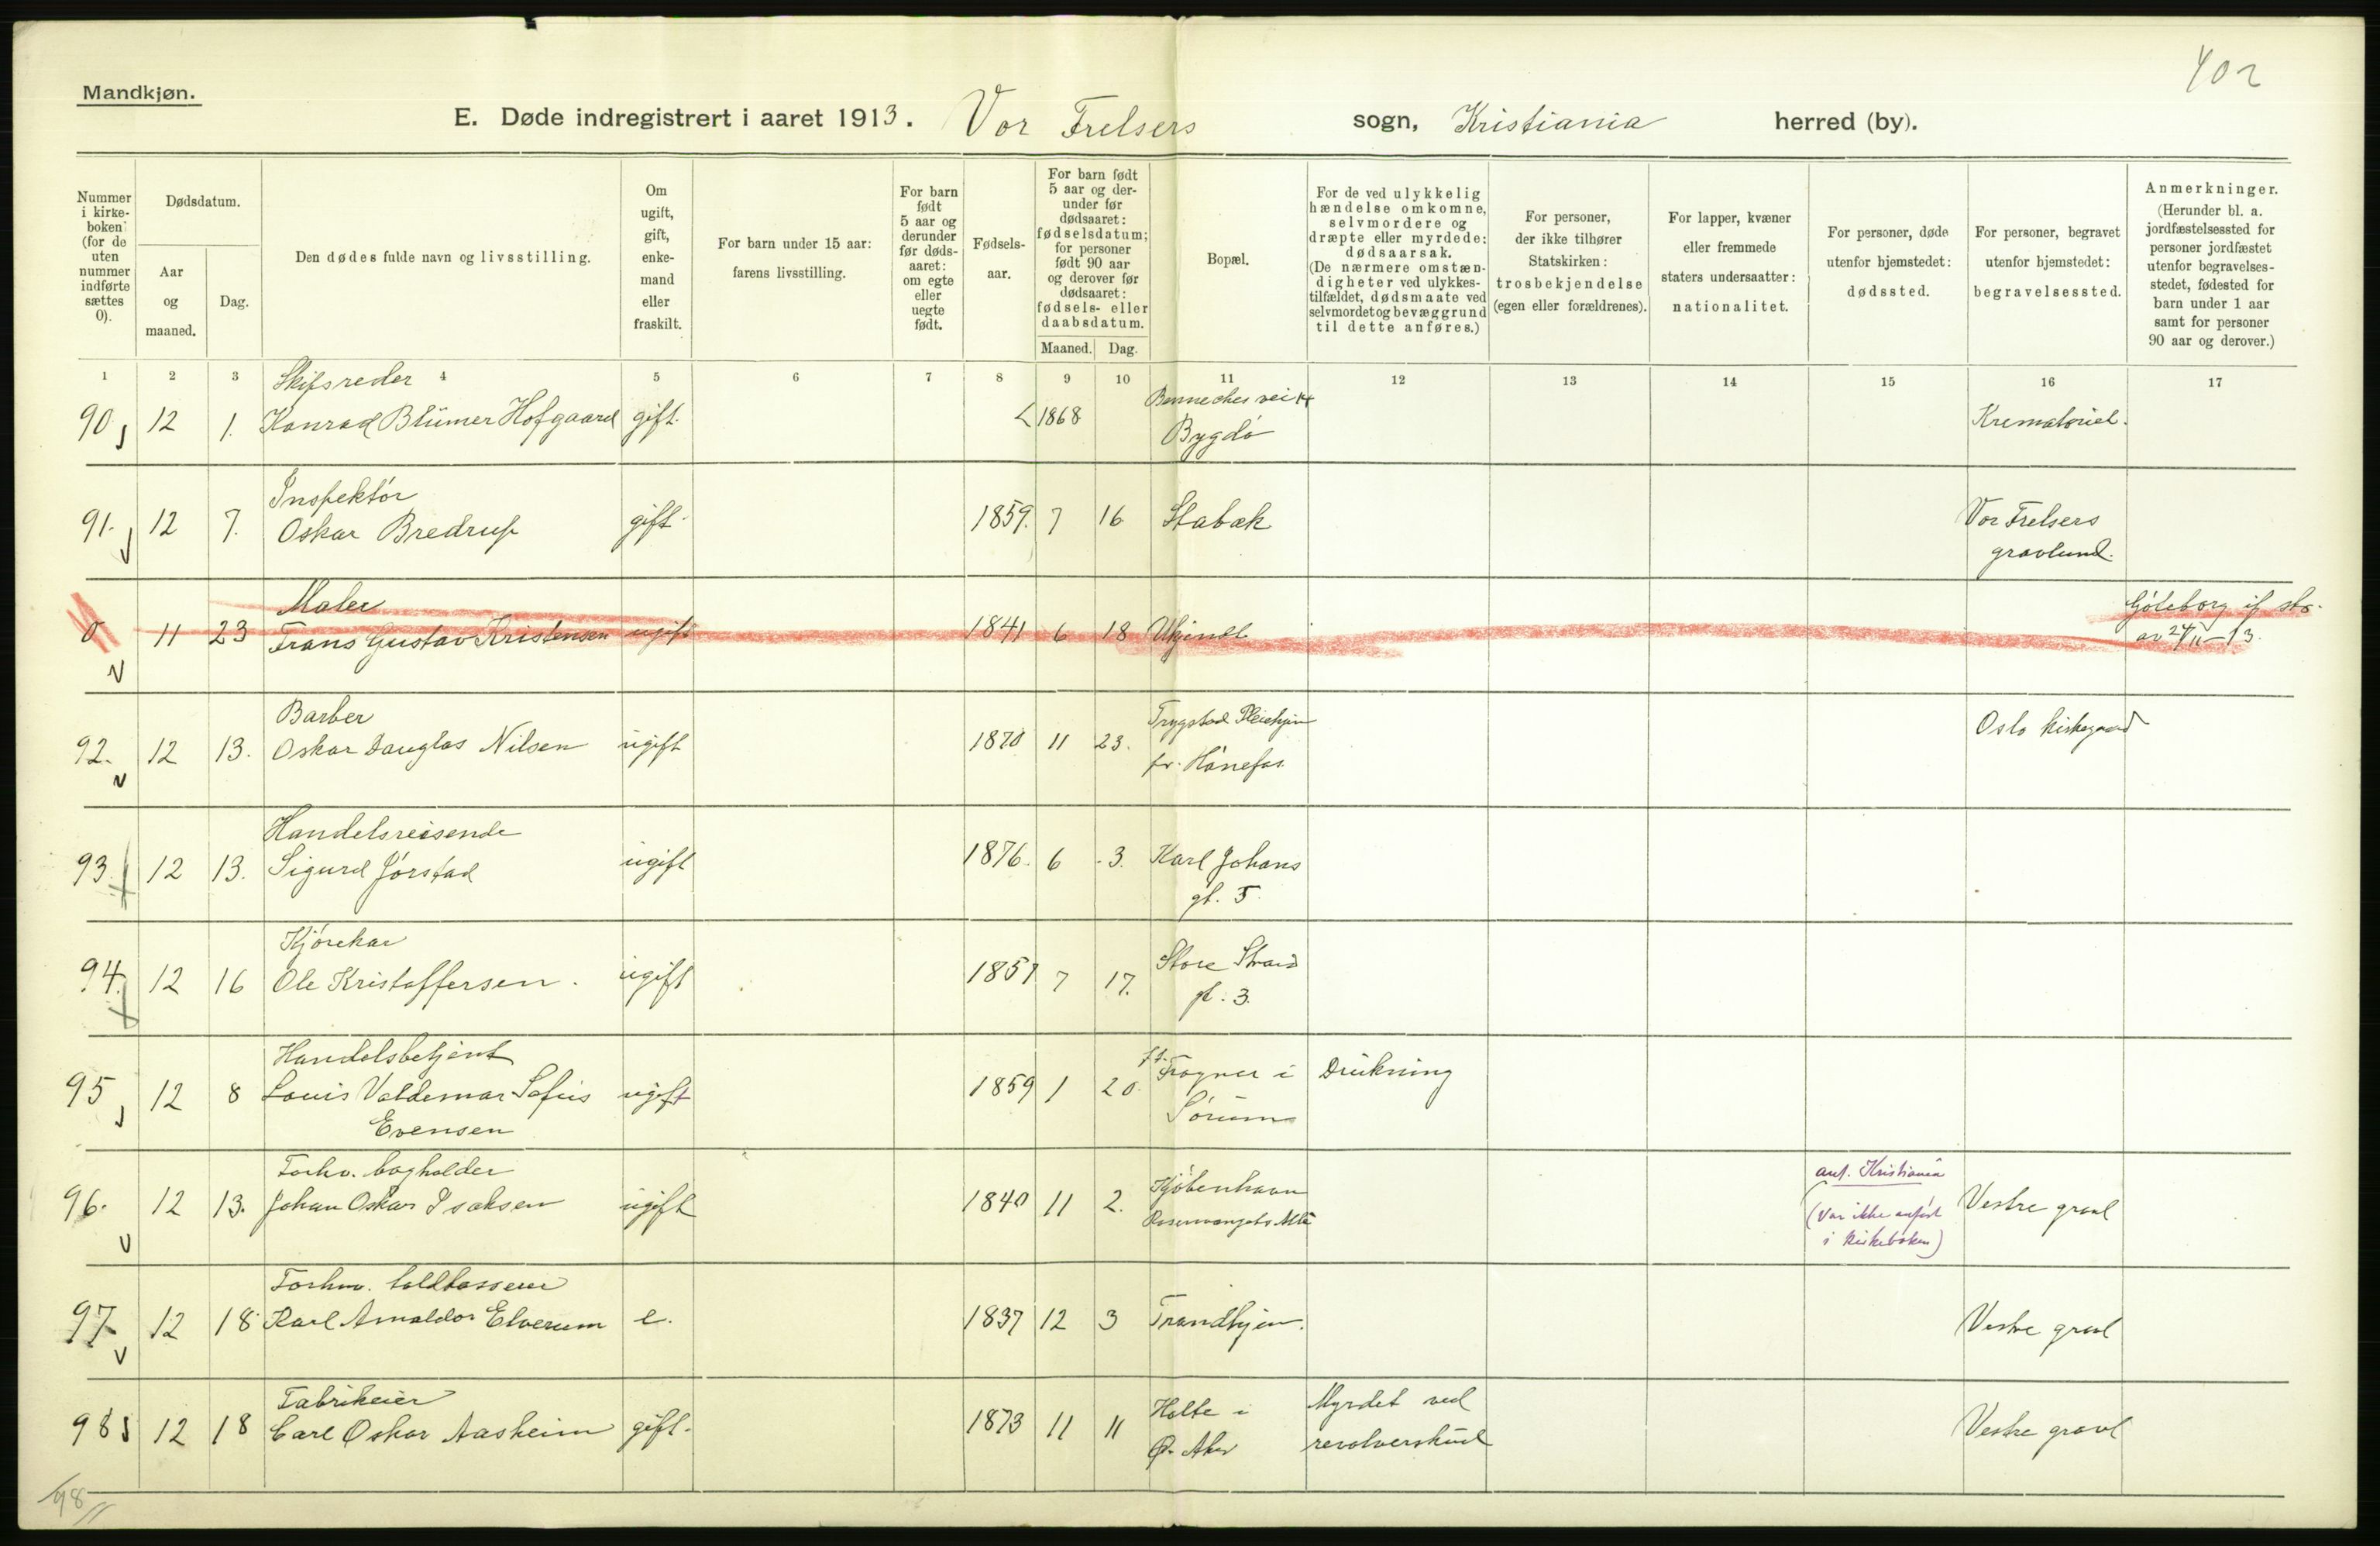 402
Mandkjøn.
E. Døde indregistrert i aaret 1913. Vor Frelsers sogn, Kristiania herred (by).
Nummer i kirke- boken (for de uten nummer indførte sættes 0).
Dødsdatum.
Aar og maaned.
Dag.
Den dødes fulde navn og livsstilling.
Om ugift, gift, enke- mand eller fraskilt.
For barn under 15 aar: farens livsstilling.
For barn født 5 aar og derunder før døds- aaret: om egte eller uegte født.
Fødsels- aar.
For barn født 5 aar og der- under før dødsaaret: fødselsdatum; for personer født 90 aar og derover før dødsaaret: fødsels- eller daabsdatum.
Maaned. Dag.
Bopæl.
For de ved ulykkelig hændelse omkomne, selvmordere og dræpte eller myrdede: dødsaarsak. (De nærmere omstæn- digheter ved ulykkes- tilfældet, dødsmaate ved selvmordet og bevæggrund til dette anføres.)
For personer, der ikke tilhører Statskirken: trosbekjendelse (egen eller forældrenes).
For lapper, kvæner eller fremmede staters undersaatter: nationalitet.
For personer, døde utenfor hjemstedet: dødssted.
For personer, begravet utenfor hjemstedet: begravelsessted.
Anmerkninger. (Herunder bl. a. jordfæstelsessted for personer jordfæstet utenfor begravelses- stedet, fødested for barn under 1 aar samt for personer 90 aar og derover.)
1 2 3 4 5 6 7 8 9 10 11 12 13 14 15 16 17
Skipsreder
90 12 1. Konrad Blümer Hofgaard gift. 1868
Bygdö Krematoriet.
Inspektör
91. 12 7. Oskar Bredrup gift. 1859. 7 16 Stabæk Vor Frelsers
gravlund.
Maler
0 11 23 Frans Gustav Kristensen ugift 1841 6 18 Ukjendt Göteborg
av 24/11-13.
Barber
92. 12 13. Oskar Douglas Nilsen ugift 1870 11 23. Trygstad Pleiehjem
pr. Hönefos. Oslo kirkegaard
Handelsreisende
93. 12 13. Sigurd Jörstad ugift 1876. 6 3. Karl Johans
gt. 5.
Kjörekar
94. 12 16 Ole Kristoffersen. ugift 1857 7 17. Store Strand
gt. 3.
Handelsbetjent
95 12 8 Louis Valdemar Sofus ugift 1859 1 20. Frogner i Drukning
Evensen Sörum
Forhv. bogholder
96. 12 13. Johan Oskar Isaksen ugift 1840 11 2. Kjöbenhavn
Rosenvangets Allé ant. Kristiania
(var ikke anfört
i kirkeboken) Vestre gravl
Forhv. toldkasserer
97. 12 18. Karl Arnoldor Elverum e. 1837 12 3 Trondhjem. Vestre gravl
Fabrikeier
98 12 18 Carl Oskar Aasheim gift. 1873 11 11 Holte i
Ø. Aker Myrdet ved
revolverskud Vestre gravl
98